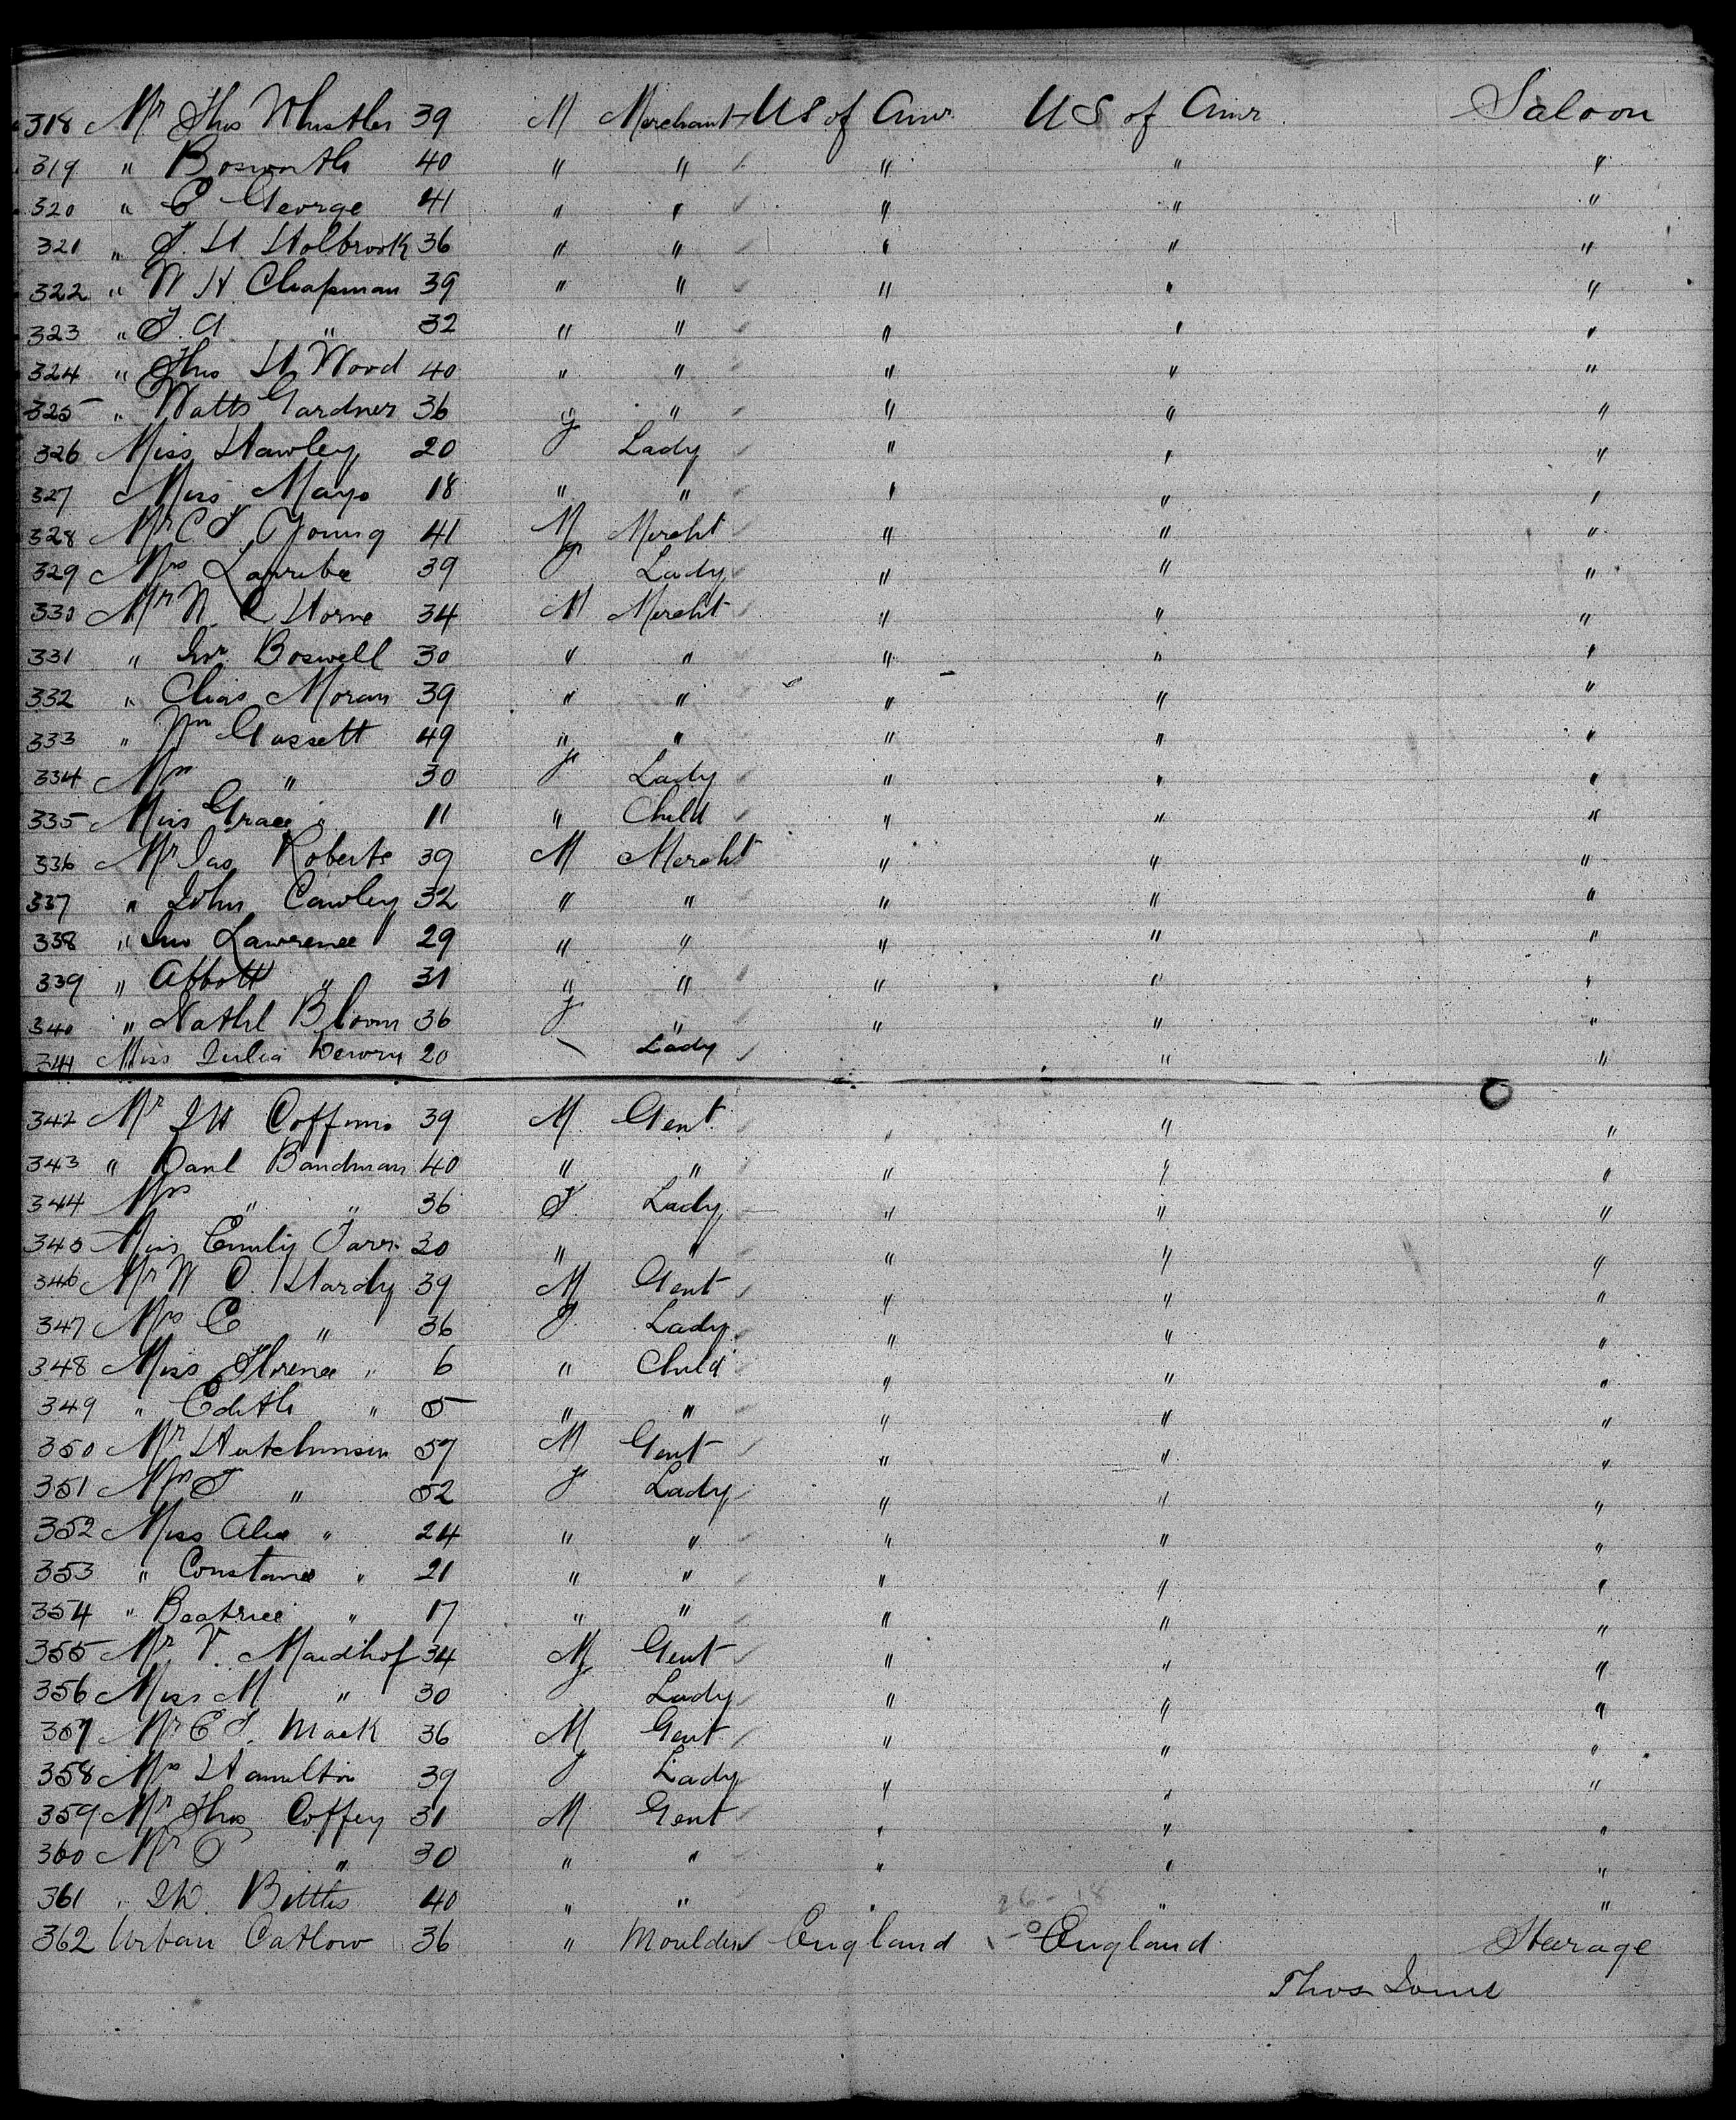 318 Mr Thos Whistler 39 M Merchant US of Amr US of Amr Saloon
319 " Bosworth 40 " " " " "
320 " C George 41 " " " " "
321 " T. H. Holbrook 36 " " " " "
322 " W H Chapman 39 " " " " "
323 " T. A. " 32 " " " " "
324 " Thos H Wood 40 " " " " "
325 " Watts Gardner 36 " " " " "
326 Miss Hawley 20 F Lady " " "
327 Miss Mayo 18 " " " " "
328 Mr C T Young 41 M Mercht " " "
329 Mrs Larribe 39 F Lady " " "
330 Mr N. C Horne 34 M Mercht " " "
331 " Boswell 30 " " " " "
332 " Chas Moran 39 " " " " "
333 " Wm Gassett 49 " " " " "
334 Mrs " 30 F Lady " " "
335 Miss Grace " 11 " Child " " "
336 Mr Jas Roberts 39 M Mercht " " "
337 " John Cawley 32 " " " " "
338 " Jno Lawrence 29 " " " " "
339 " Abbott " 31 " " " " "
340 " Nathl Bloom 36 F " " " "
341 Miss Julia 20 \ Lady " "
342 Mr J W 39 M. Gent. " " "
343 " Danl Bandman 40 " " " " "
344 Mrs " " 36 F Lady " " "
345 Miss Emily 30 " " " " "
346 Mr W O. Hardy 39 M Gent " " "
347 Mrs C " 36 F Lady " " "
348 Miss Florence " 6 " Child " " "
349 " Edith " 5 " " " " "
350 Mr Hutchinson 57 M Gent " " "
351 Mrs T " 52 F Lady " " "
352 Miss Alice " 24 " " " " "
353 " Constance " 21 " " " " "
354 " Beatrice " 17 " " " " "
355 Mr V. Maidhof 34 M Gent " " "
356 Miss M " 30 F Lady " " "
357 Mr E T. Mack 36 M Gent " " "
358 Mrs Hamilton 39 F Lady " " "
359 Mr Thos Coffey 31 M Gent " " "
360 Mr T " 30 " " " " "
361 " J W. 40 " " " " "
26-18
362 Urban Catlow 36 " Moulder England England Steerage
Thos